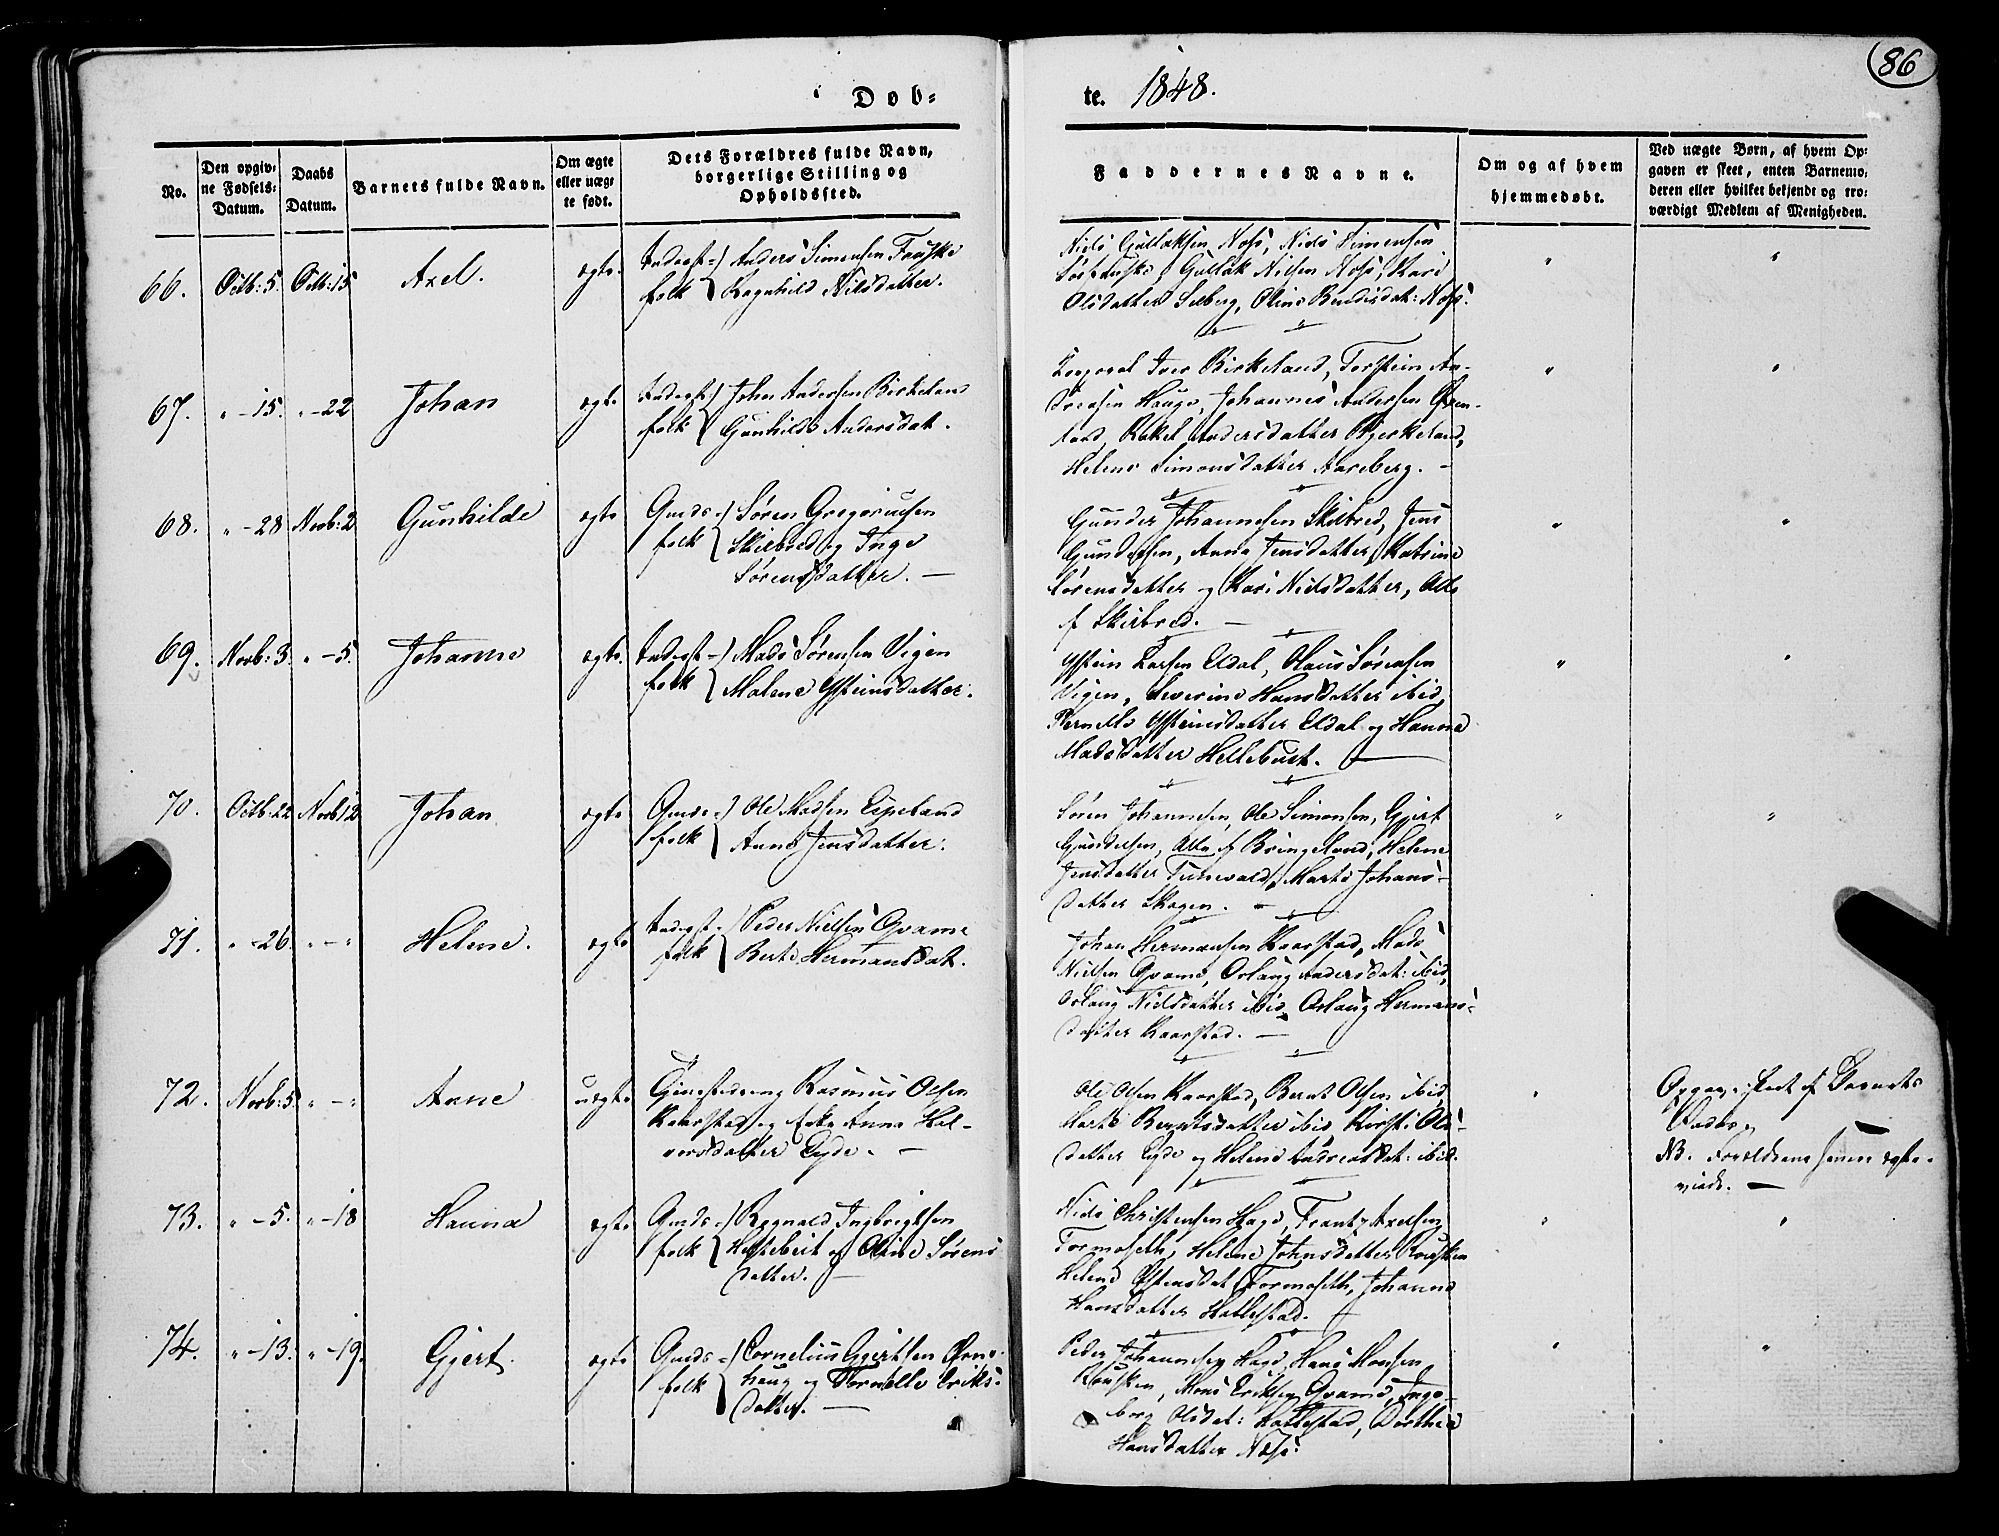 86
Døb-
te. 1848.
No.
Den opgiv-
ne Fødsels-
Datum.
Daabs
Datum.
Barnets fulde Navn.
Om ægte
eller uæg-
te født.
Dets Forældres fulde Navn,
borgerlige Stilling og
Opholdssted.
Faddernes Navne.
Om og af hvem
hjemmedøbt.
Ved uægte Børn, af hvem Op-
gaven er skeet, enten Barnemo-
deren eller hvilket bekjendt og tro-
værdigt Medlem af Menigheden.
66. Octb: 5. Octb: 15 Axel. ægte. Inderst-
folk
Anders Simensen Fauske
Ragnhild Nilsdatter.
Niels Gullaksen Næss, Niels Simensen
Gullak Nilsen Næss, Kari
Olsdatter Seeberg, Oline Bendixdat: Næss.
67. " -15. " -22 Johan ægte Inderst-
folk
John Andersen Birkeland
Gunhilde Andersdat.
Corporal Iver Birkeland, Torstein An-
dreasen Hauge, Johannes Andersen Grøn-
land, Rakel Andersdatter Bjerkeland,
Helene Simonsdatter Aareberg. -
68. " -28 Novb: 2 Gunhilde ægte Gmds-
folk
Søren Gregoriusen
Skilbred og Inge
Sørensdatter. -
Gunder Johannesen Skilbred, Jens
Gundersen, Anna Jensdatter, Katrine
Sørensdatter og Kari Nielsdatter, Alle
af Skilbred. -
69. Novb: 3. " -5. Johanne ægte. Inderst-
folk
Mads Sørensen Vigen
Malene Østeinsdatter.
Østein Larsen Eldal, Hans Sørensen
Vigen, Severine Hansdatter ibid,
Pernille Østeinsdatter Eldal og Hanna
Madsdatter Hellebust. -
70. Octb: 22 Novb 12 Johan ægte Gmds-
folk
Ole Madsen Espeland
Anne Jensdatter.
Søren Johannesen, Ole Simonsen, Gjert
Gundersen, Alle af Bringeland, Helene
Jensdatter Tunevald, Marte Johans-
datter Skogen. -
71. " -26 " - " Helene. ægte Inderst-
folk
Peder Nielsen Qvame
Berte Hermansdat.
Johan Hermansen Kaarstad, Mads
Nielsen Qvame, Oslaug Andersdat: ibid,
Oslaug Nielsdatter ibid, Oslaug Hermans-
datter Kaarstad. -
72. Novb: 5. " - " Anne uægte Rasmus Olsen
Kaarstad og Anna Hal-
vorsdatter Eyde. -
Ole Olsen Kaarstad, Bernt Olsen ibid,
Marte Berntsdatter ibid Kirsti Ols-
datter Eyde og Helene Andreasdat: ibid.
Opgav. skeet af Barnets
Fader
NB. Forældrene senere ægte-
viede. -
73. " -5. " -18 Hanna ægte Gmds-
folk
Rognald Ingbrigtsen
Hellebust og Oline Sørens
datter. -
Niels Christensen Hage, Frantz Axelsen
Tormoseth, Helene Johnsdatter Rousken
Helene Østensdat. Tormoseth, Johanne
Hansdatter Hallestad. -
74. " -13. " -19. Gjert. ægte Gmds-
folk
Cornelius Gjertsen Ørne-
haug og Pernille Eriks-
datter. -
Peder Johannesen Hage, Hans Monsen
Rousken, Mons Eriksen Qvame, Inge-
borg Olsdat: Hallestad, Dorthea
Hansdatter Næss.